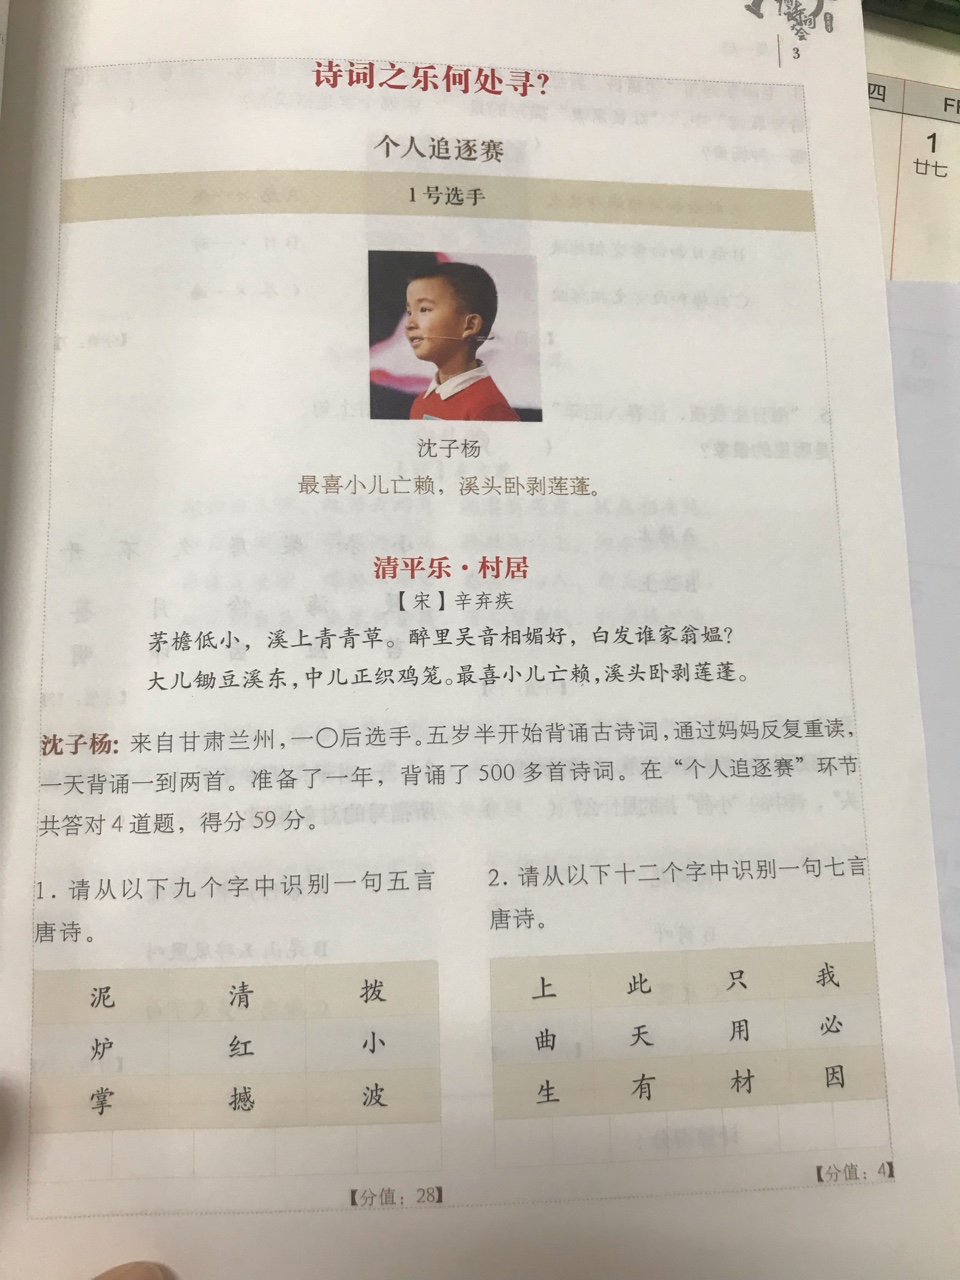 3
诗词之乐何处寻?
个人追逐赛
1号选手
沈子杨
最喜小儿亡赖，溪头卧剥莲蓬。
清平乐·村居
【宋】辛弃疾
茅檐低小，溪上青青草。醉里吴音相媚好，白发谁家翁媪?
大儿锄豆溪东，中儿正织鸡笼。最喜小儿亡赖，溪头卧剥莲蓬。
沈子杨：来自甘肃兰州，一〇后选手。五岁半开始背诵古诗词，通过妈妈反复重读，
一天背诵一到两首。准备了一年，背诵了500多首诗词。在“个人追逐赛”环节
共答对4道题，得分59分。
1. 请从以下九个字中识别一句五言
唐诗。
泥 清 拨
炉 红 小
掌 撼 波
【分值：28】
2. 请从以下十二个字中识别一句七言
唐诗。
上 此 只 我
曲 天 用 必
生 有 材 因
【分值：4】
四
1
廿七